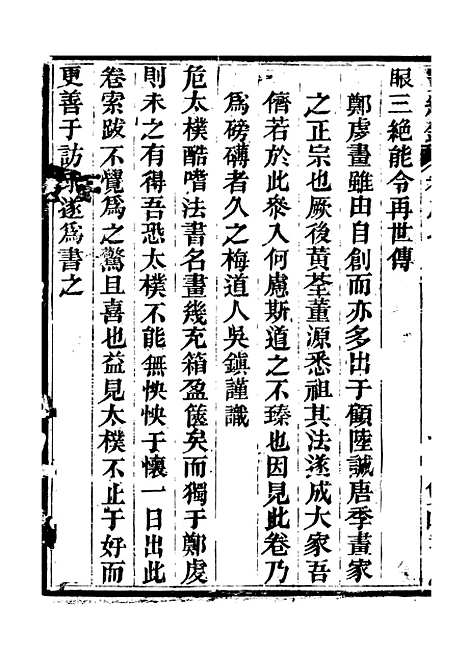 眼三絶能令再世傳
鄭虔畫雖由自創而亦多出于顧陸誠唐季畫家
之正宗也厥後黄荃董源悉祖其法遂成大家吾
儕若於此參入何慮斯道之不臻也因見此卷乃
爲磅礴者久之梅道人吳鎮謹識
危太樸酷嗜法書名畫幾充箱盈篋矣而獨于鄭虔
則未之有得吾恐太樸不能無怏怏于懷一日出此
卷索跋不覺爲之驚且喜也益見太樸不止于好而
更善于訪遂爲書之